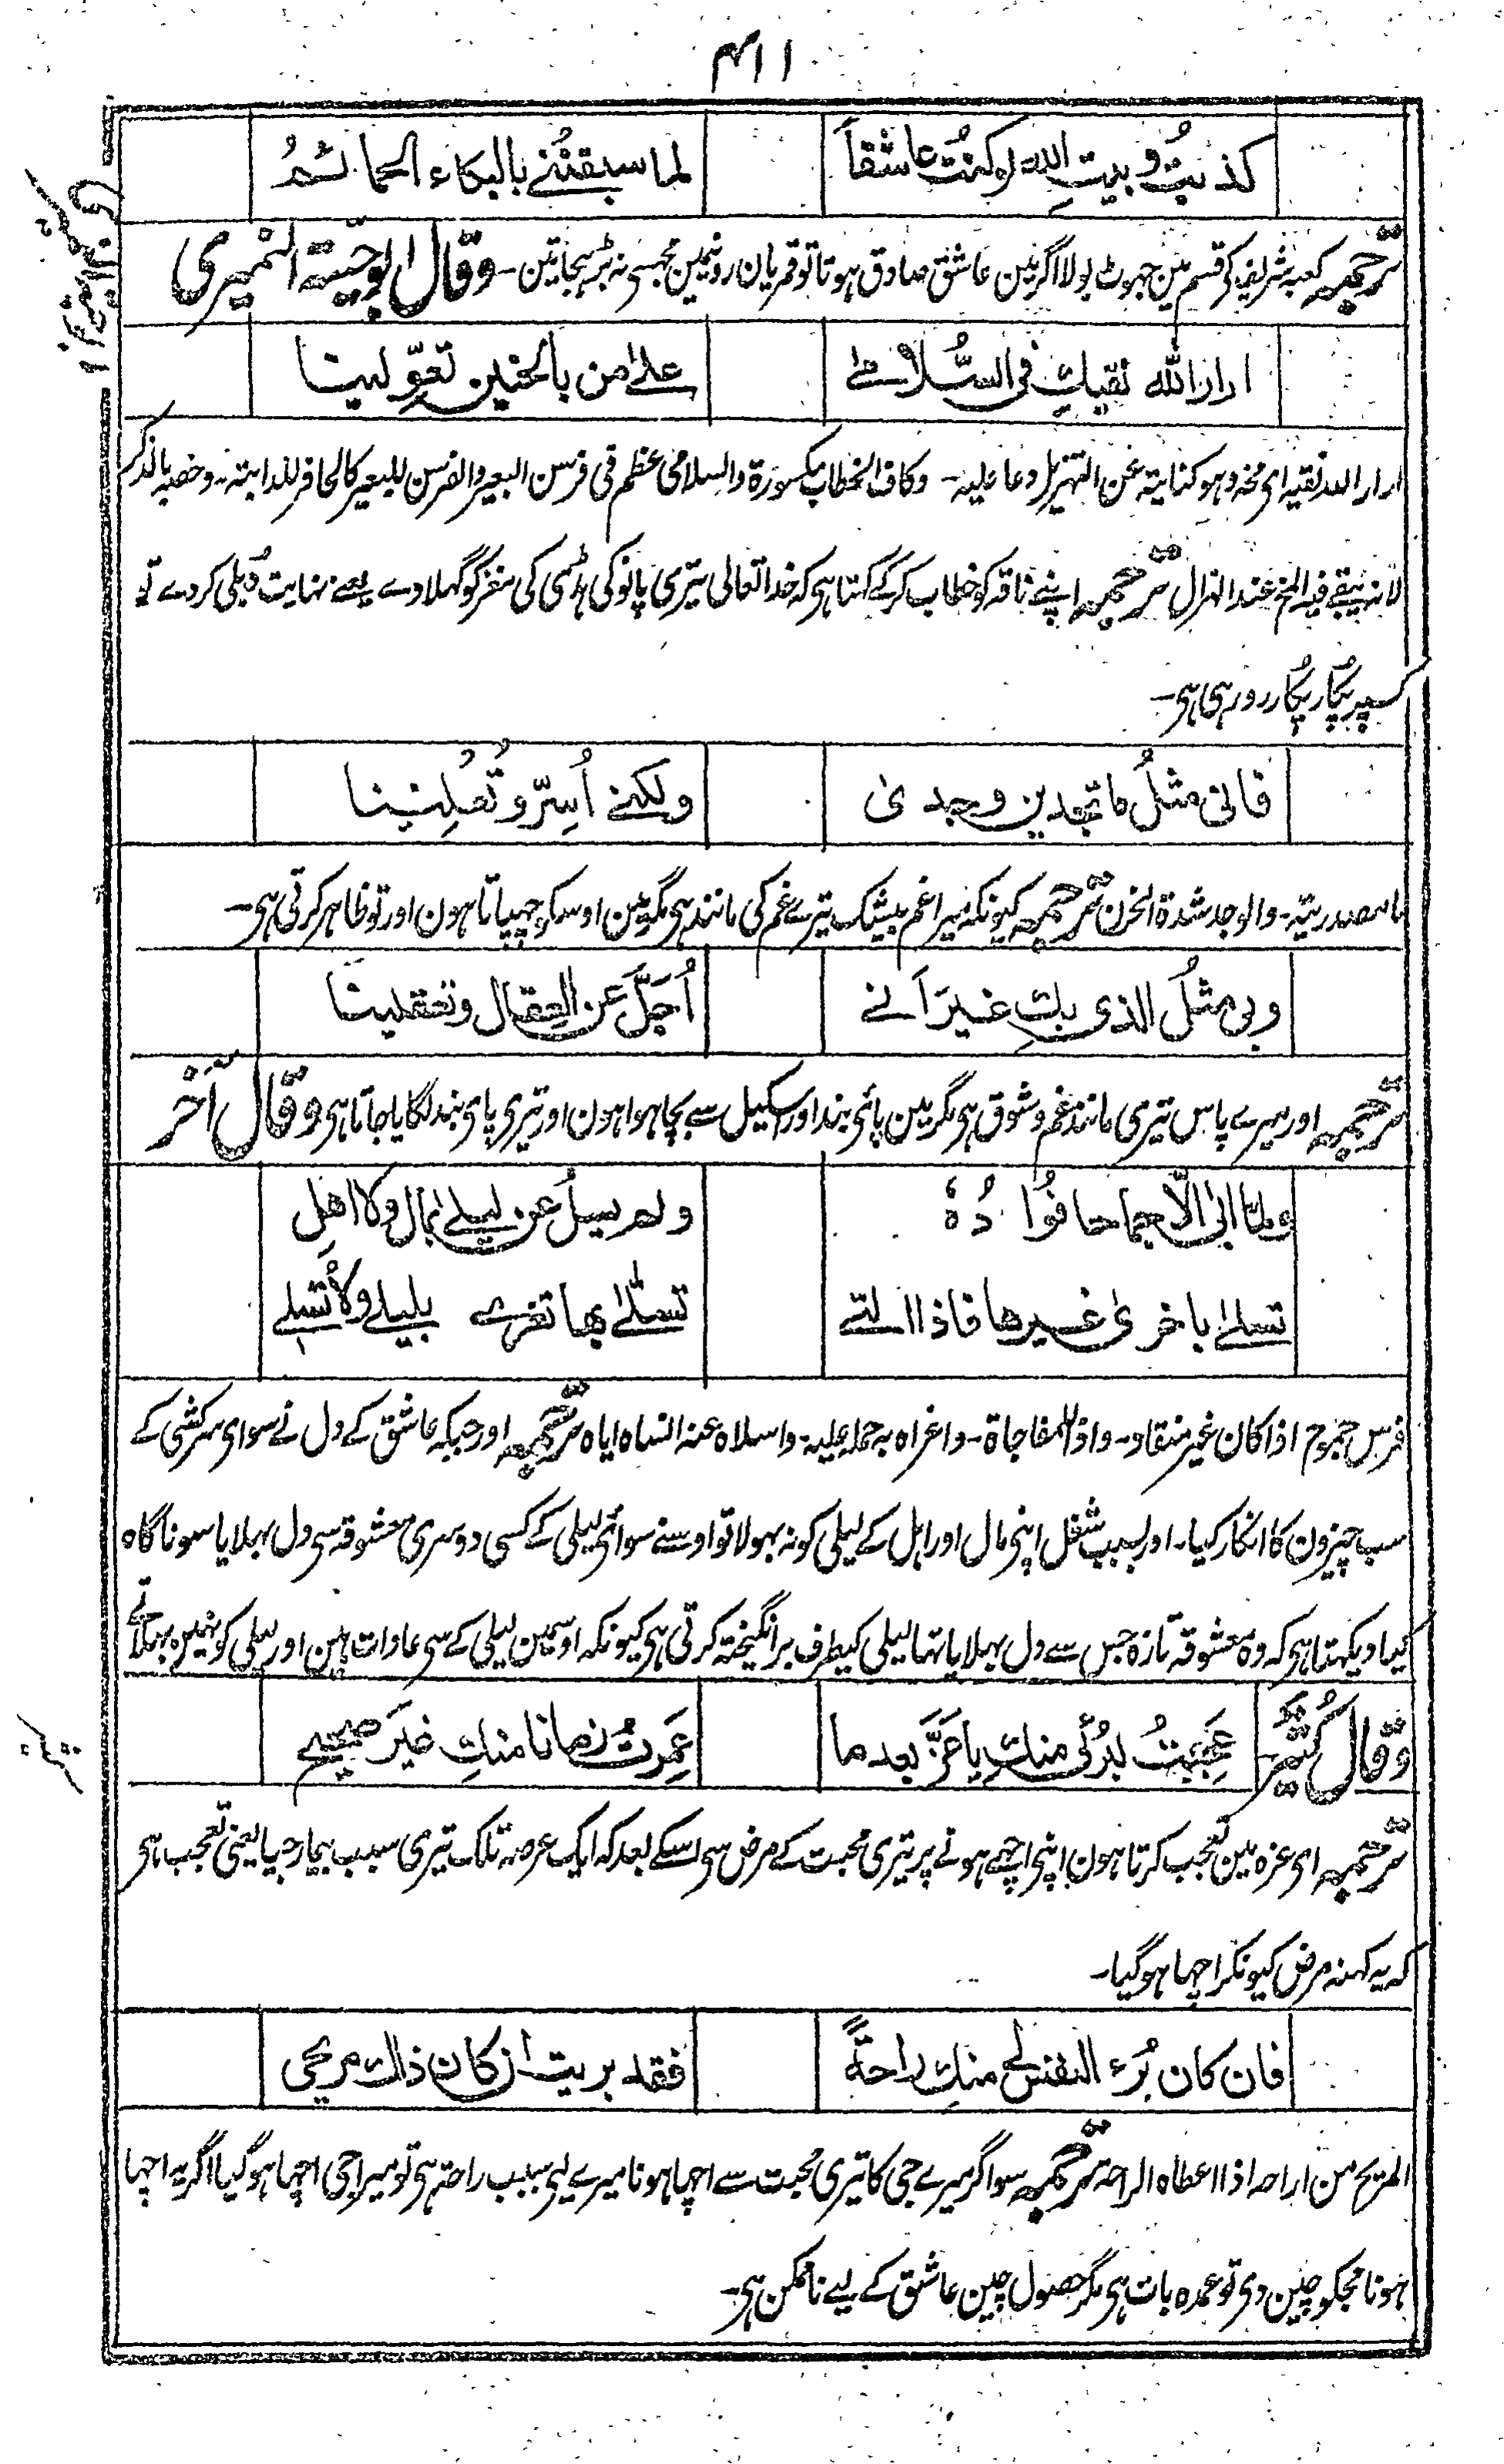 ۴۱۱
كذبتُ وبيتِ الله لو كنتُ عاشقاً لما سبقتنے بالبكاء الحمائمُ
ترجمہ کعبہ شریف کی قسم مین جہوٹ بولا اگر مین عاشق صادق ہوتا تو قمریان رونیمین مجہسی نہ بڑہجاتین۔ وقال ابو حیّۃ النمیری
ارار الله نقيكِ في السُّلامےٰ علےٰ من بالحنين تعوِّلينا
ارار اللہ نقیہ ای مخہ وہو کنایتہ عن التہزیل دعا علیہ۔ وکاف الخطاب مکسورۃ والسلامی عظم فی فرسن البعیر والفرسن للبعیر کالحافر للدابتہ۔ وخصہ بالذکر
لانہ یبقے فیہ المخ عند الہزال ترجمہ اپنے ناقہ کو خطاب کرکے کہتا ہی کہ خدا تعالی تیری پانو کی ہڈمی کی مغز کو گہلادے یعنے نہایت دُبلی کردے تو
کسپر پُکار پُکار رو رہی ہی۔
فانی مثلُ ما تجدين وجدی ولكنے أُسِرّ وتُعلِنينا
ما مصدریتہ۔ والوجد شدۃ الحزن ترجمہ کیونکہ میرا غم بیشک تیرے غم کی مانند ہی مگر مین اوسکو چہپاتا ہون اور تو ظاہر کرتی ہی۔
وبی مثلُ الذی بكِ غيرَ أنے أُجَلُّ عَن العِقال وتعقلينا
ترجمہ اور میرے پاس تیری مانند غم و شوق ہی مگر مین پائی بند اور اسکیل سے بچا ہوا ہون اور تیری پای بند لگایا جاتا ہی وقال آخر
ولما ابیٰ الّا جماحا فُؤادُہٗ ولم يسلُ عن ليلےٰ بمال ولا اهلِ
تسلےٰ باخریٰ غيرها فاذا التے تسلّےٰ بها تغرے بليلےٰ ولا تُسلے
فرس جموح اذا کان غیر منقاد۔ واذا للمفاجاۃ۔ واغراہ بہ حملہ علیہ۔ واسلاہ عنہ انساہ ایاہ ترجمہ اور جبکہ عاشق کے دل نے سوای سرکشی کے
سب چیزون کا انکار کیا۔ اور بسبب شغل اپنی مال اور اہل کے لیلی کو نہ بہولا تو اوسنے سوائی لیلی کے کسی دوسری معشوقہ سی دل بہلایا سو ناگاہ
کیا دیکہتا ہی کہ وہ معشوقہ تازہ جس سے دل بہلایا تہا لیلی کیطرف برانگیختہ کرتی ہی کیونکہ اوسمین لیلی کے سی عادات ہین اور لیلی کو نہین بہلاتے
وقال کُثیّر عَجِبتُ لبرُئی منكِ يا عَزَّ بعد ما عَمِرتُ زمانا منكِ غيرَ صحيحے
ترجمہ ای عزہ مین تعجب کرتا ہون اپنی اچہے ہونے پر تیری محبت کے مرض سی اسکے بعد کہ ایک عرصہ تلک تیری سبب بیمار رہا یعنی تعجب ہی
کہ یہ کہنہ مرض کیونکر اچہا ہو گیا۔
فان كان بُرء النفس لی منكِ راحةً فقد بريت ان كان ذالك مريحی
المریح من اراحہ اذا اعطاہ الراحہ ترجمہ سو اگر میرے جی کا تیری محبت سے اچہا ہونا میرے لیی سبب راحت ہی تو میرا جی اچہا ہو گیا اگر یہ اچہا
ہونا مجکو چین دی تو عمدہ بات ہی مگر حصول چین عاشق کے لیے ناممکن ہی۔